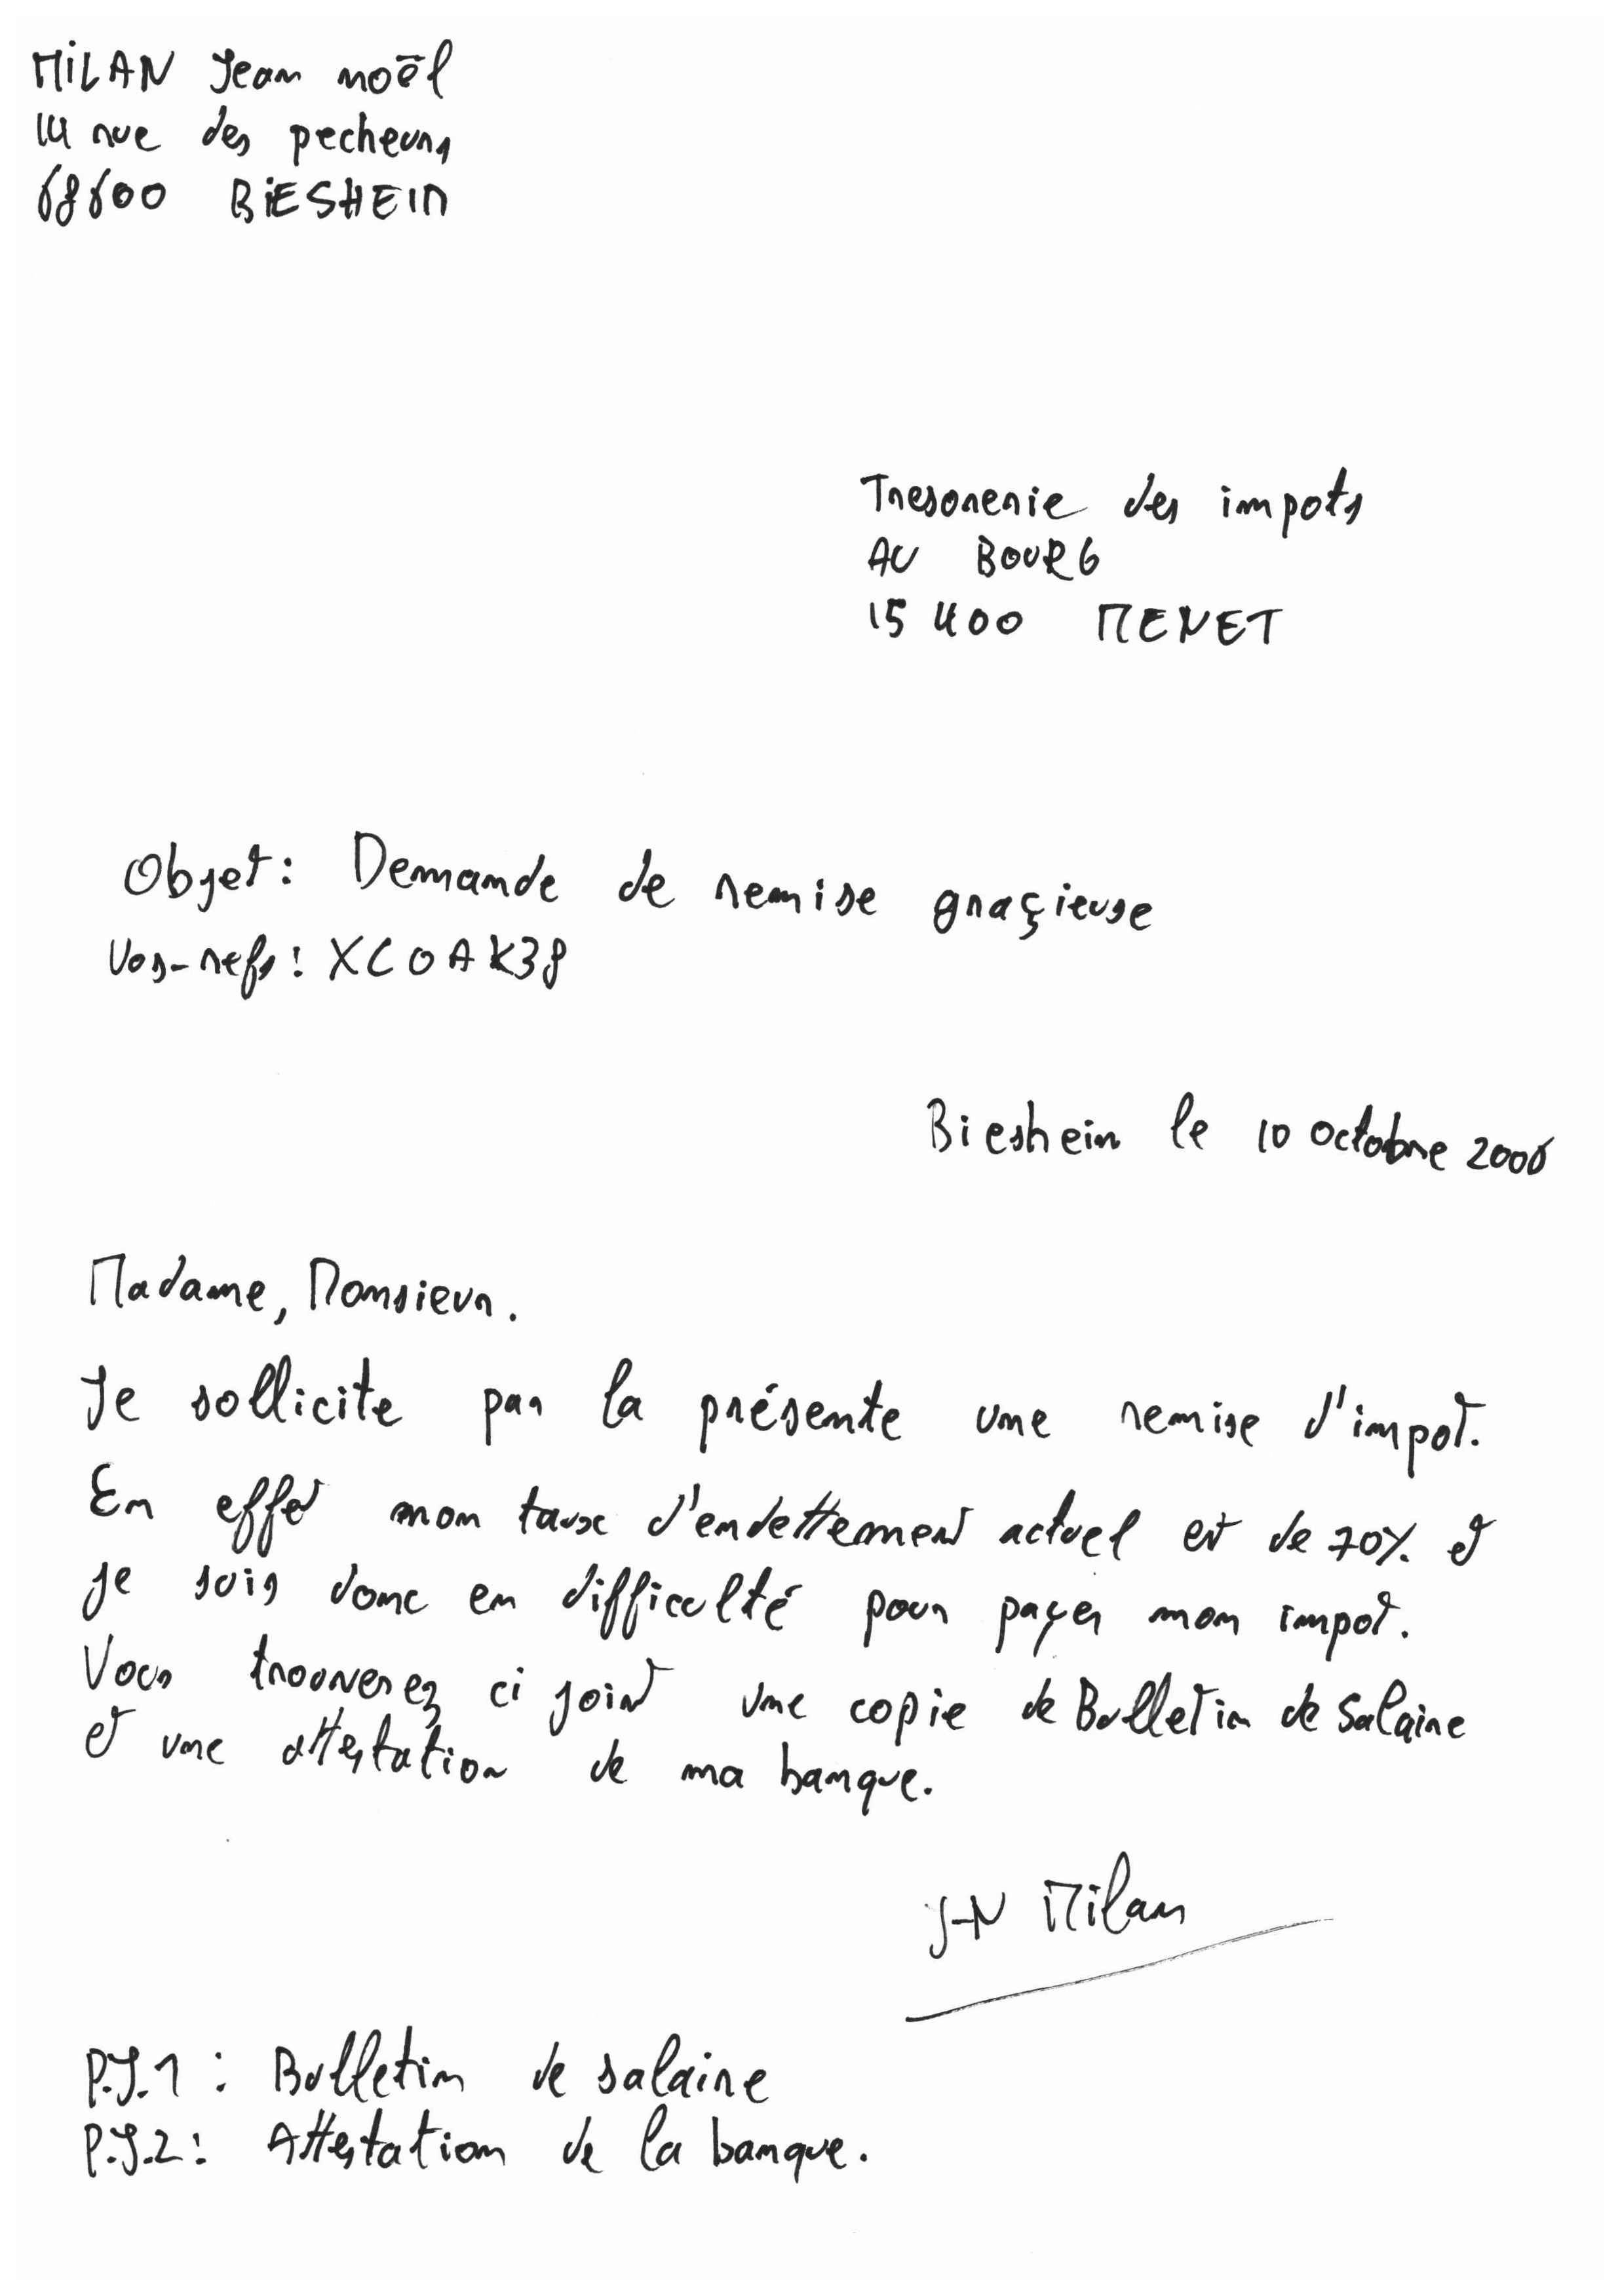 MILAN Jean noël
14 rue des pecheurs
68600 BIESHEIN
Tresorerie des impots
AU BOURG
15400 MENET
Objet: Demande de remise graçieuse
Vos-refs: XCOAK38
Bieshein le 10 octobre 2006
Madame, Monsieur.
Je sollicite par la présente une remise d'impot.
En effet mon taux d'endettement actuel est de 70% et
je suis donc en difficulté pour payer mon impot.
Vous trouverez ci joint une copie de Bulletin de salaire
et une attestation de ma banque.
J-N Milan
P.J.1 : Bulletin de salaire
P.J.2 : Attestation de la banque.